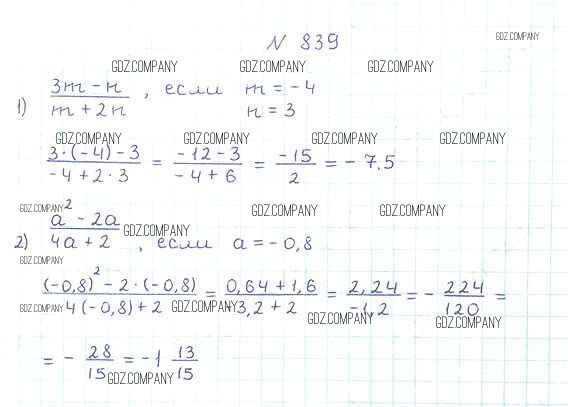 N 839
GDZ.COMPANY
GDZ.COMPANY GDZ.COMPANY GDZ.COMPANY
1) (3m - n)/(m + 2n), если m = -4
n = 3
GDZ.COMPANY GDZ.COMPANY GDZ.COMPANY GDZ.COMPANY
(3·(-4)-3)/(-4+2·3) = (-12-3)/(-4+6) = -15/2 = -7.5
GDZ.COMPANY GDZ.COMPANY GDZ.COMPANY
2) (a² - 2a)/(4a + 2), если a = -0,8
GDZ.COMPANY
GDZ.COMPANY
((-0,8)² - 2·(-0,8))/(4(-0,8)+2) = (0,64+1,6)/(-3,2+2) = 2,24/-1,2 = -224/120 =
GDZ.COMPANY GDZ.COMPANY GDZ.COMPANY GDZ.COMPANY
= -28/15 = -1 13/15
GDZ.COMPANY